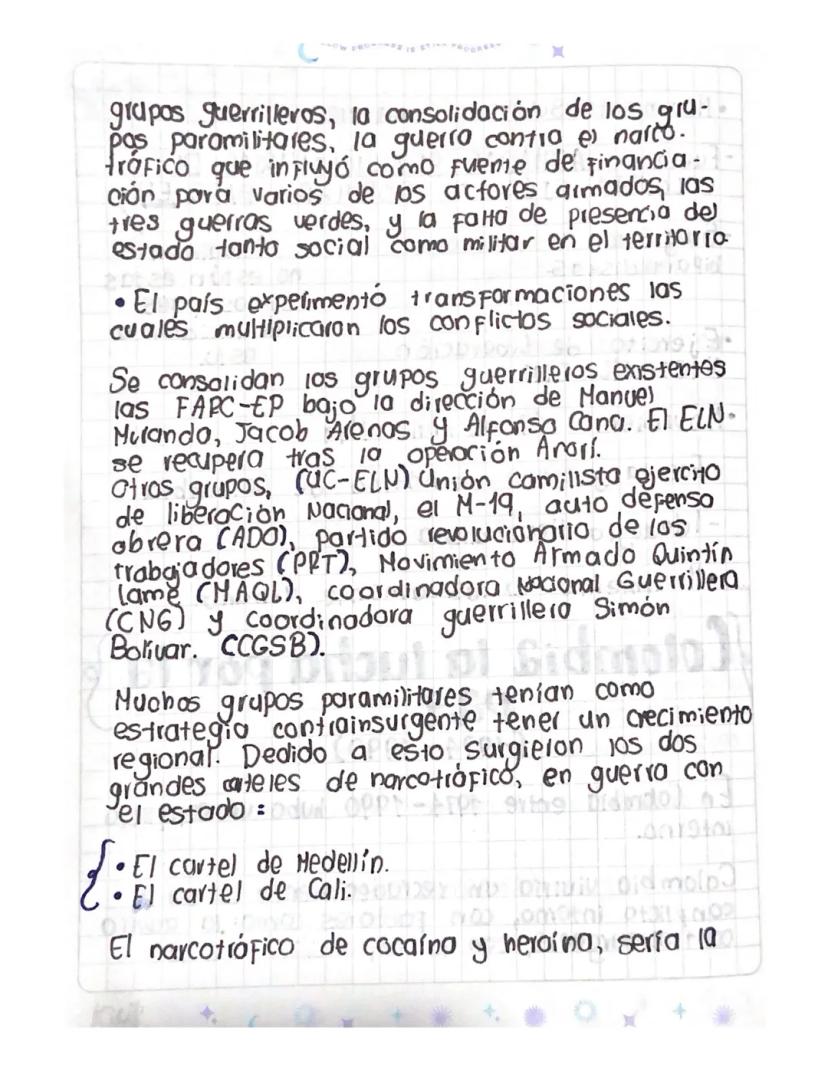 grupos guerrilleros, la consolidación de los gru-
pos paramilitares, la guerra contra el narco-
tráfico que influyó como fuente de financia-
ción para varios de los actores armados, las
tres guerras verdes, y la falta de presencia del
estado tanto social como militar en el territorio
• El país experimentó transformaciones las
cuales multiplicaron los conflictos sociales.
Se consolidan los grupos guerrilleros existentes
las FARC-EP bajo la dirección de Manuel
Mulanda, Jacob Arenas y Alfonso Cano. El ELN-
se recupera tras la operación Anorí.
Otros grupos, (UC-ELN) Unión camilista ejercito
de liberación Nacional, el M-19, auto defensa
obrera (ADO), partido revolucionario de los
trabajadores (PRT), Movimiento Armado Quintín
lame (MAQL), coordinadora Nacional Guerrillera
(CNG) y coordinadora guerrillera Simón
Bolivar. CCGSB).
Muchos grupos paramilitares tenían como
estrategia contrainsurgente tener un crecimiento
regional. Dedido a esto surgieron los dos
grandes carteles de narcotráfico, en guerra con
el estado :
• El cartel de Medellín.
• El cartel de Cali.
El narcotráfico de cocaína y heroína, sería la